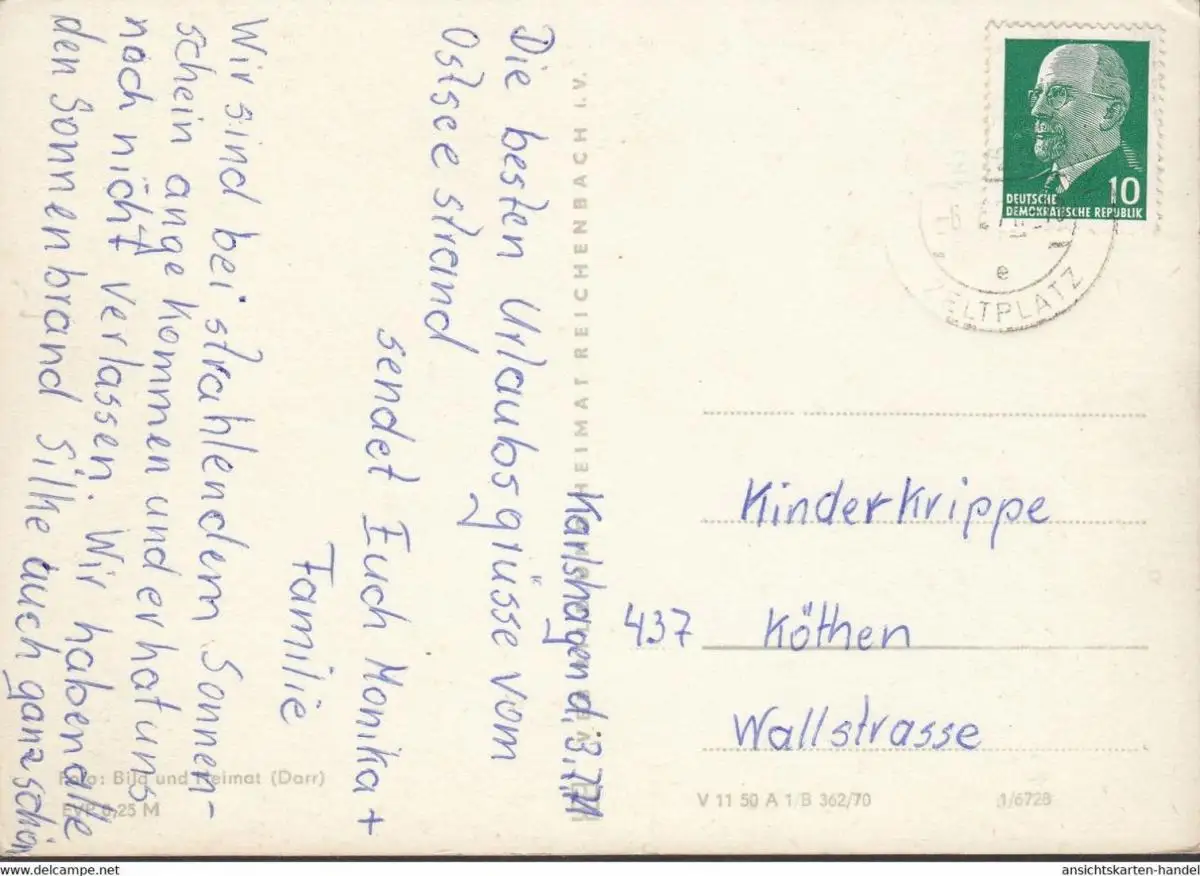 Karlshagen d, 3.7.71
Die besten Urlaubsgrüsse vom
Ostseestrand
sendet Euch Monika +
Familie
Wir sind bei strahlendem Sonnen-
schein angekommen und er hat uns
noch nicht verlassen. Wir haben alle
den Sonnenbrand Silke auch ganz schön
Foto: Bild und Heimat (Darr)
EVP 0,25 M
HEIMAT REICHENBACH I.V.
DEUTSCHE
DEMOKRATISCHE REPUBLIK
10
e
ZELTPLATZ
Kinderkrippe
437 Köthen
Wallstrasse
V 11 50 A 1/B 362/70
1/6728
www.delcampe.net
ansichtskarten-handel